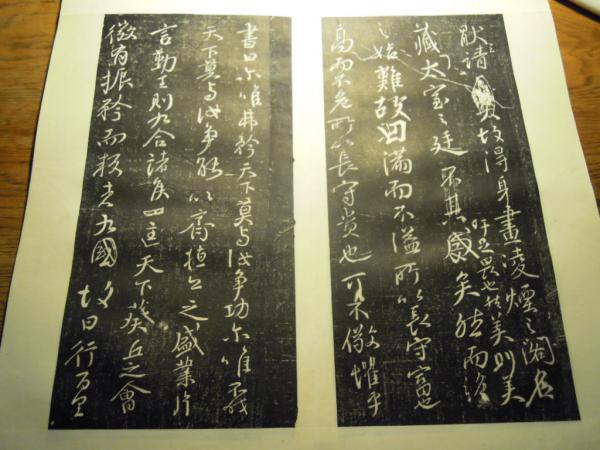 猒請故得身畫凌煙之閣名
藏太室之廷
吁足畏也然美則美
矣然而終
之始難故曰滿而不溢所以長守富也
高而不危所以長守貴也可不儆懼乎
書曰爾唯弗矜天下莫與汝爭功爾唯不伐
天下莫與汝爭能以齊桓公之盛業片
言勤王則九合諸侯一匡天下葵丘之會
微有振矜而叛者九國故曰行百里